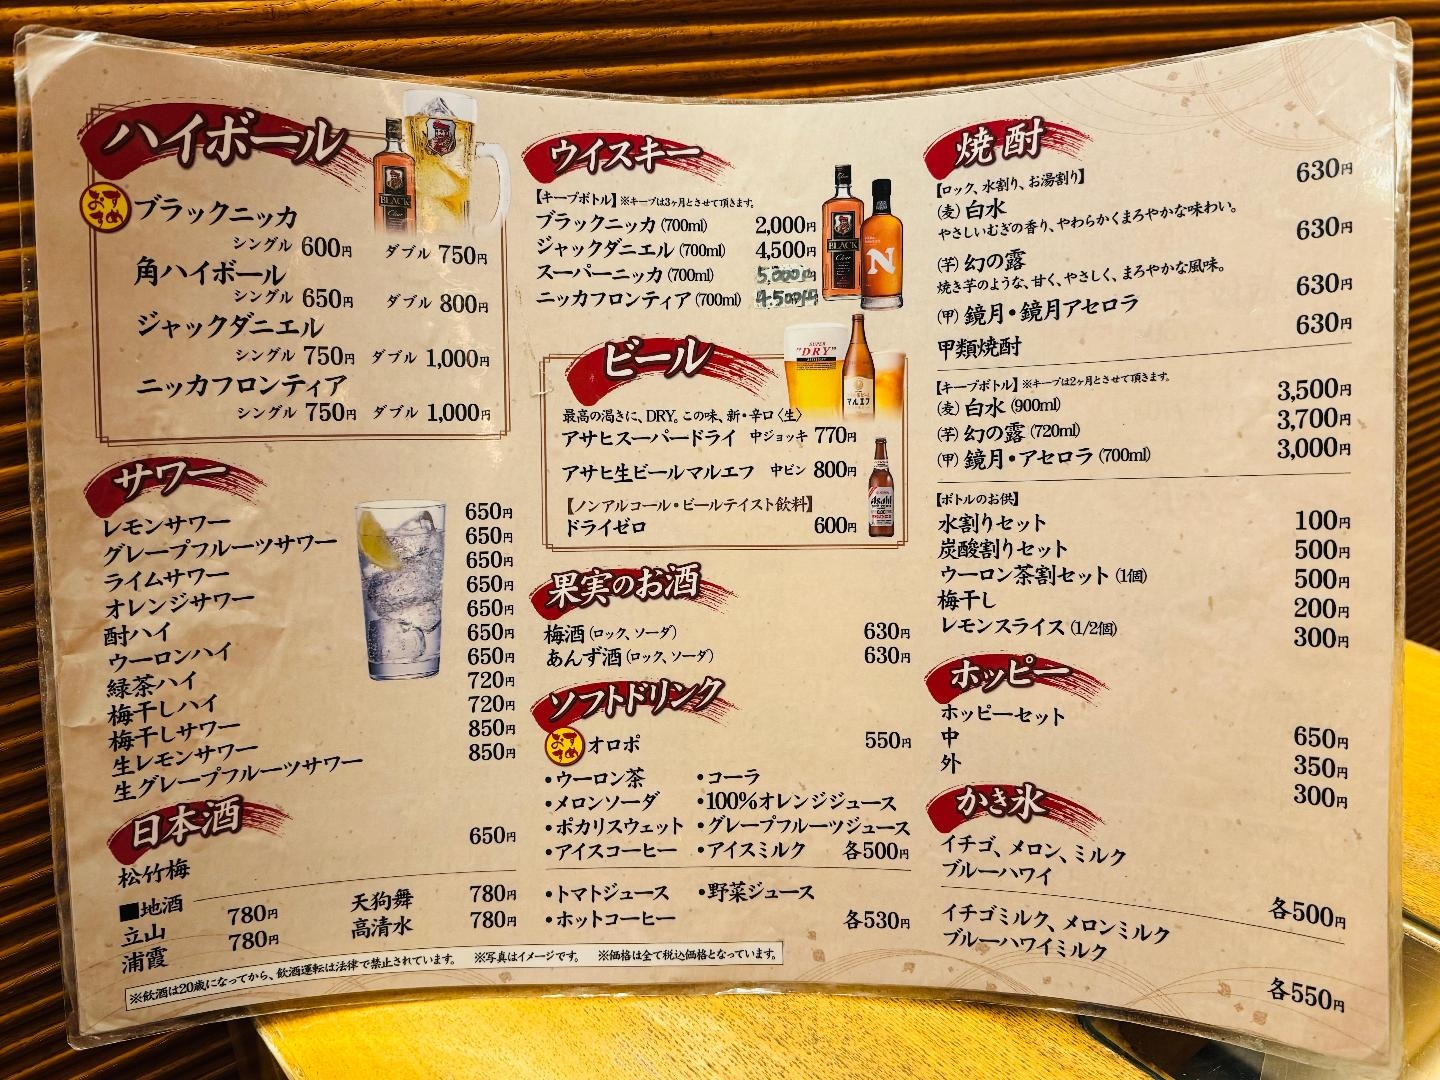 ハイボール
おすすめ
ブラックニッカ
シングル 600円 ダブル 750円
角ハイボール
シングル 650円 ダブル 800円
ジャックダニエル
シングル 750円 ダブル 1,000円
ニッカフロンティア
シングル 750円 ダブル 1,000円
サワー
レモンサワー 650円
グレープフルーツサワー 650円
ライムサワー 650円
オレンジサワー 650円
酎ハイ 650円
ウーロンハイ 650円
緑茶ハイ 650円
梅干しハイ 720円
梅干しサワー 720円
生レモンサワー 850円
生グレープフルーツサワー 850円
日本酒
松竹梅 650円
■地酒
立山 780円 天狗舞 780円
浦霞 780円 高清水 780円
※飲酒は20歳になってから、飲酒運転は法律で禁止されています。 ※写真はイメージです。 ※価格は全て税込価格となっています。
ウイスキー
【キープボトル】※キープは3ヶ月とさせて頂きます。
ブラックニッカ (700ml) 2,000円
ジャックダニエル (700ml) 4,500円
スーパーニッカ (700ml) 5,000円
ニッカフロンティア (700ml) 4,500円
BLACK
Clear
N
ビール
SUPER
"DRY"
マルエフ
最高の渇きに、DRY。この味、新・辛口〈生〉
アサヒスーパードライ 中ジョッキ 770円
アサヒ生ビールマルエフ 中ビン 800円
【ノンアルコール・ビールテイスト飲料】
ドライゼロ 600円
Asahi
果実のお酒
梅酒 (ロック、ソーダ) 630円
あんず酒 (ロック、ソーダ) 630円
ソフトドリンク
おすすめ
オロポ 550円
•ウーロン茶 •コーラ
•メロンソーダ •100%オレンジジュース
•ポカリスウェット •グレープフルーツジュース
•アイスコーヒー •アイスミルク 各500円
•トマトジュース •野菜ジュース
•ホットコーヒー 各530円
焼酎
【ロック、水割り、お湯割り】
(麦) 白水 630円
やさしいむぎの香り、やわらかくまろやかな味わい。
(芋) 幻の露 630円
焼き芋のような、甘く、やさしく、まろやかな風味。
(甲) 鏡月・鏡月アセロラ 630円
甲類焼酎 630円
【キープボトル】※キープは2ヶ月とさせて頂きます。
(麦) 白水 (900ml) 3,500円
(芋) 幻の露 (720ml) 3,700円
(甲) 鏡月・アセロラ (700ml) 3,000円
【ボトルのお供】
水割りセット 100円
炭酸割りセット 500円
ウーロン茶割セット (1個) 500円
梅干し 200円
レモンスライス (1/2個) 300円
ホッピー
ホッピーセット 650円
中 350円
外 300円
かき氷
イチゴ、メロン、ミルク
ブルーハワイ
各500円
イチゴミルク、メロンミルク
ブルーハワイミルク
各550円